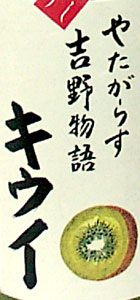 やたがらす
吉野物語
キウイ